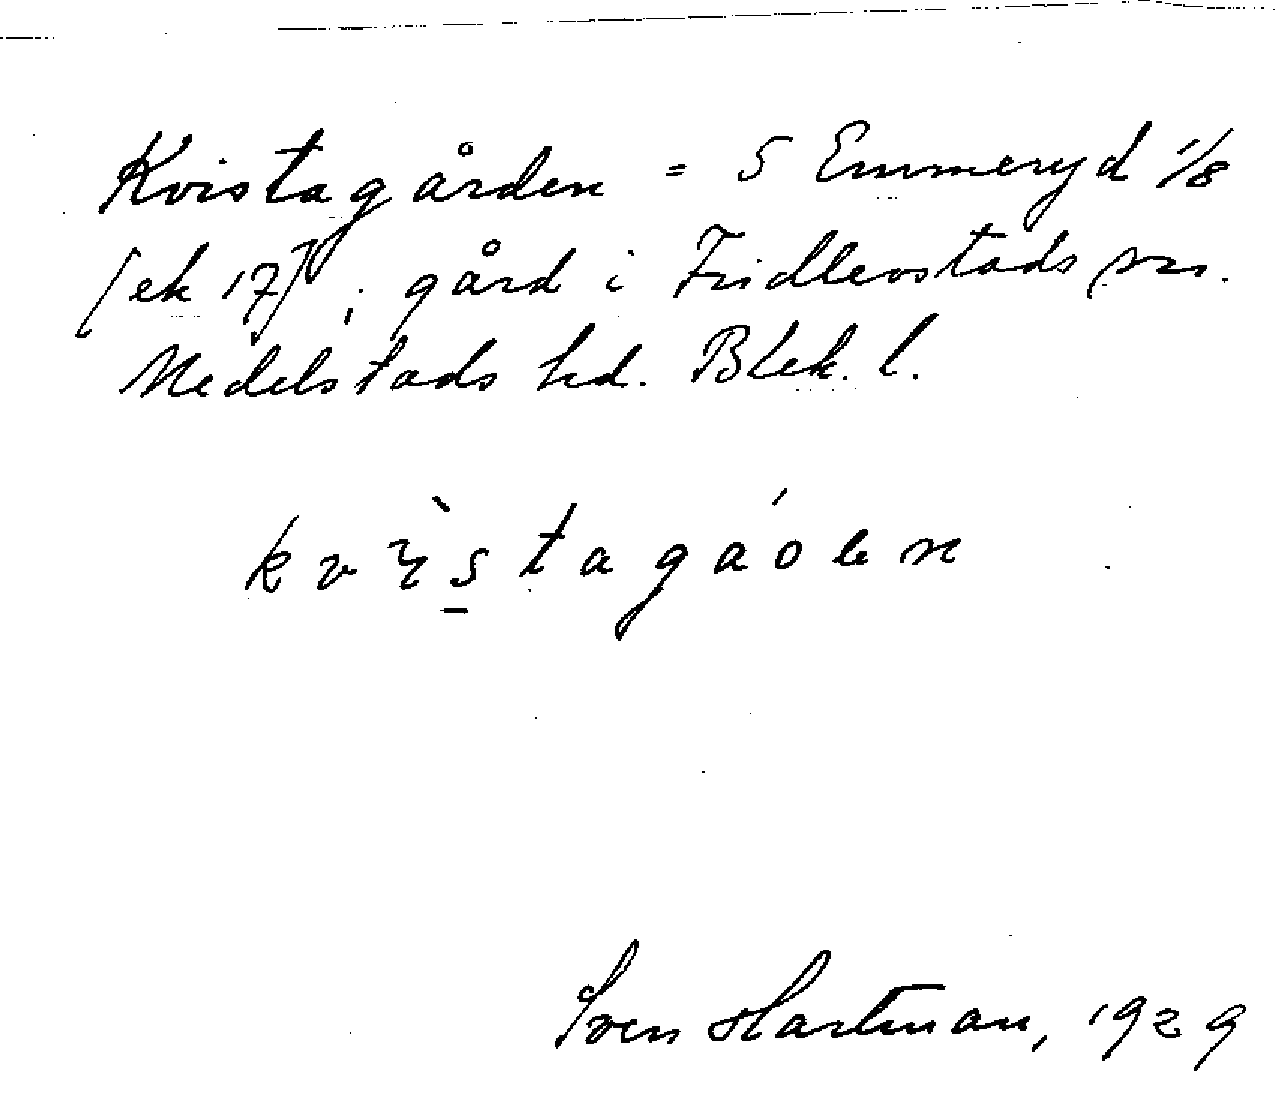 Kvistagården = 5 Emmeryd 1/8
[ek 17]; gård i Fridlevstads sn.
Medelstads hd. Blek. l.
Sven Hartman, 1929